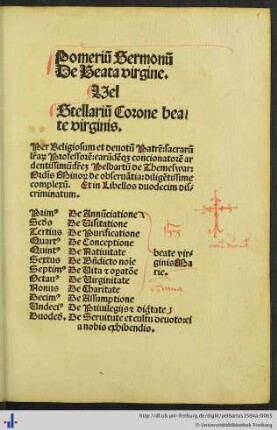 Pomeriū Sermonū
De Beata virgine.
Vel
Stellariū Corone bea⸗
te virginis.
Per Religiosum et deuotū Patrē: sacrarū
lr̄aꝝ Professorē: earūdēqꝫ concionatorē ar
dentissimū: fr̄eꝫ Pelbartū de Themeswar:
Ordīs Minoꝝ de obseruātia: diligētissime
complexū. Et in Libellos duodecim dis⸗
criminatum.
Primꝰ De Annūciatione
Scd̄s De Visitatione
Tertius De Purificatione
Quartꝰ De Conceptione
Quintꝰ De Natiuitate
Sextus De Bn̄dicto noīe
Septimꝰ De Vita ⁊ opatōe
Octauꝰ De Virginitate
Nonus De Charitate
Decimꝰ De Assumptione
Undeciꝰ De Priuilegijs ⁊ dig̅tate
Duodecꝰ De Seruitute et cultu deuoto: ei
a nobis exhibendis.
beate vir⸗
ginis Ma
rie.
http://dl.ub.uni-freiburg.de/diglit/pelbartus1504a/0005
© Universitätsbibliothek Freiburg